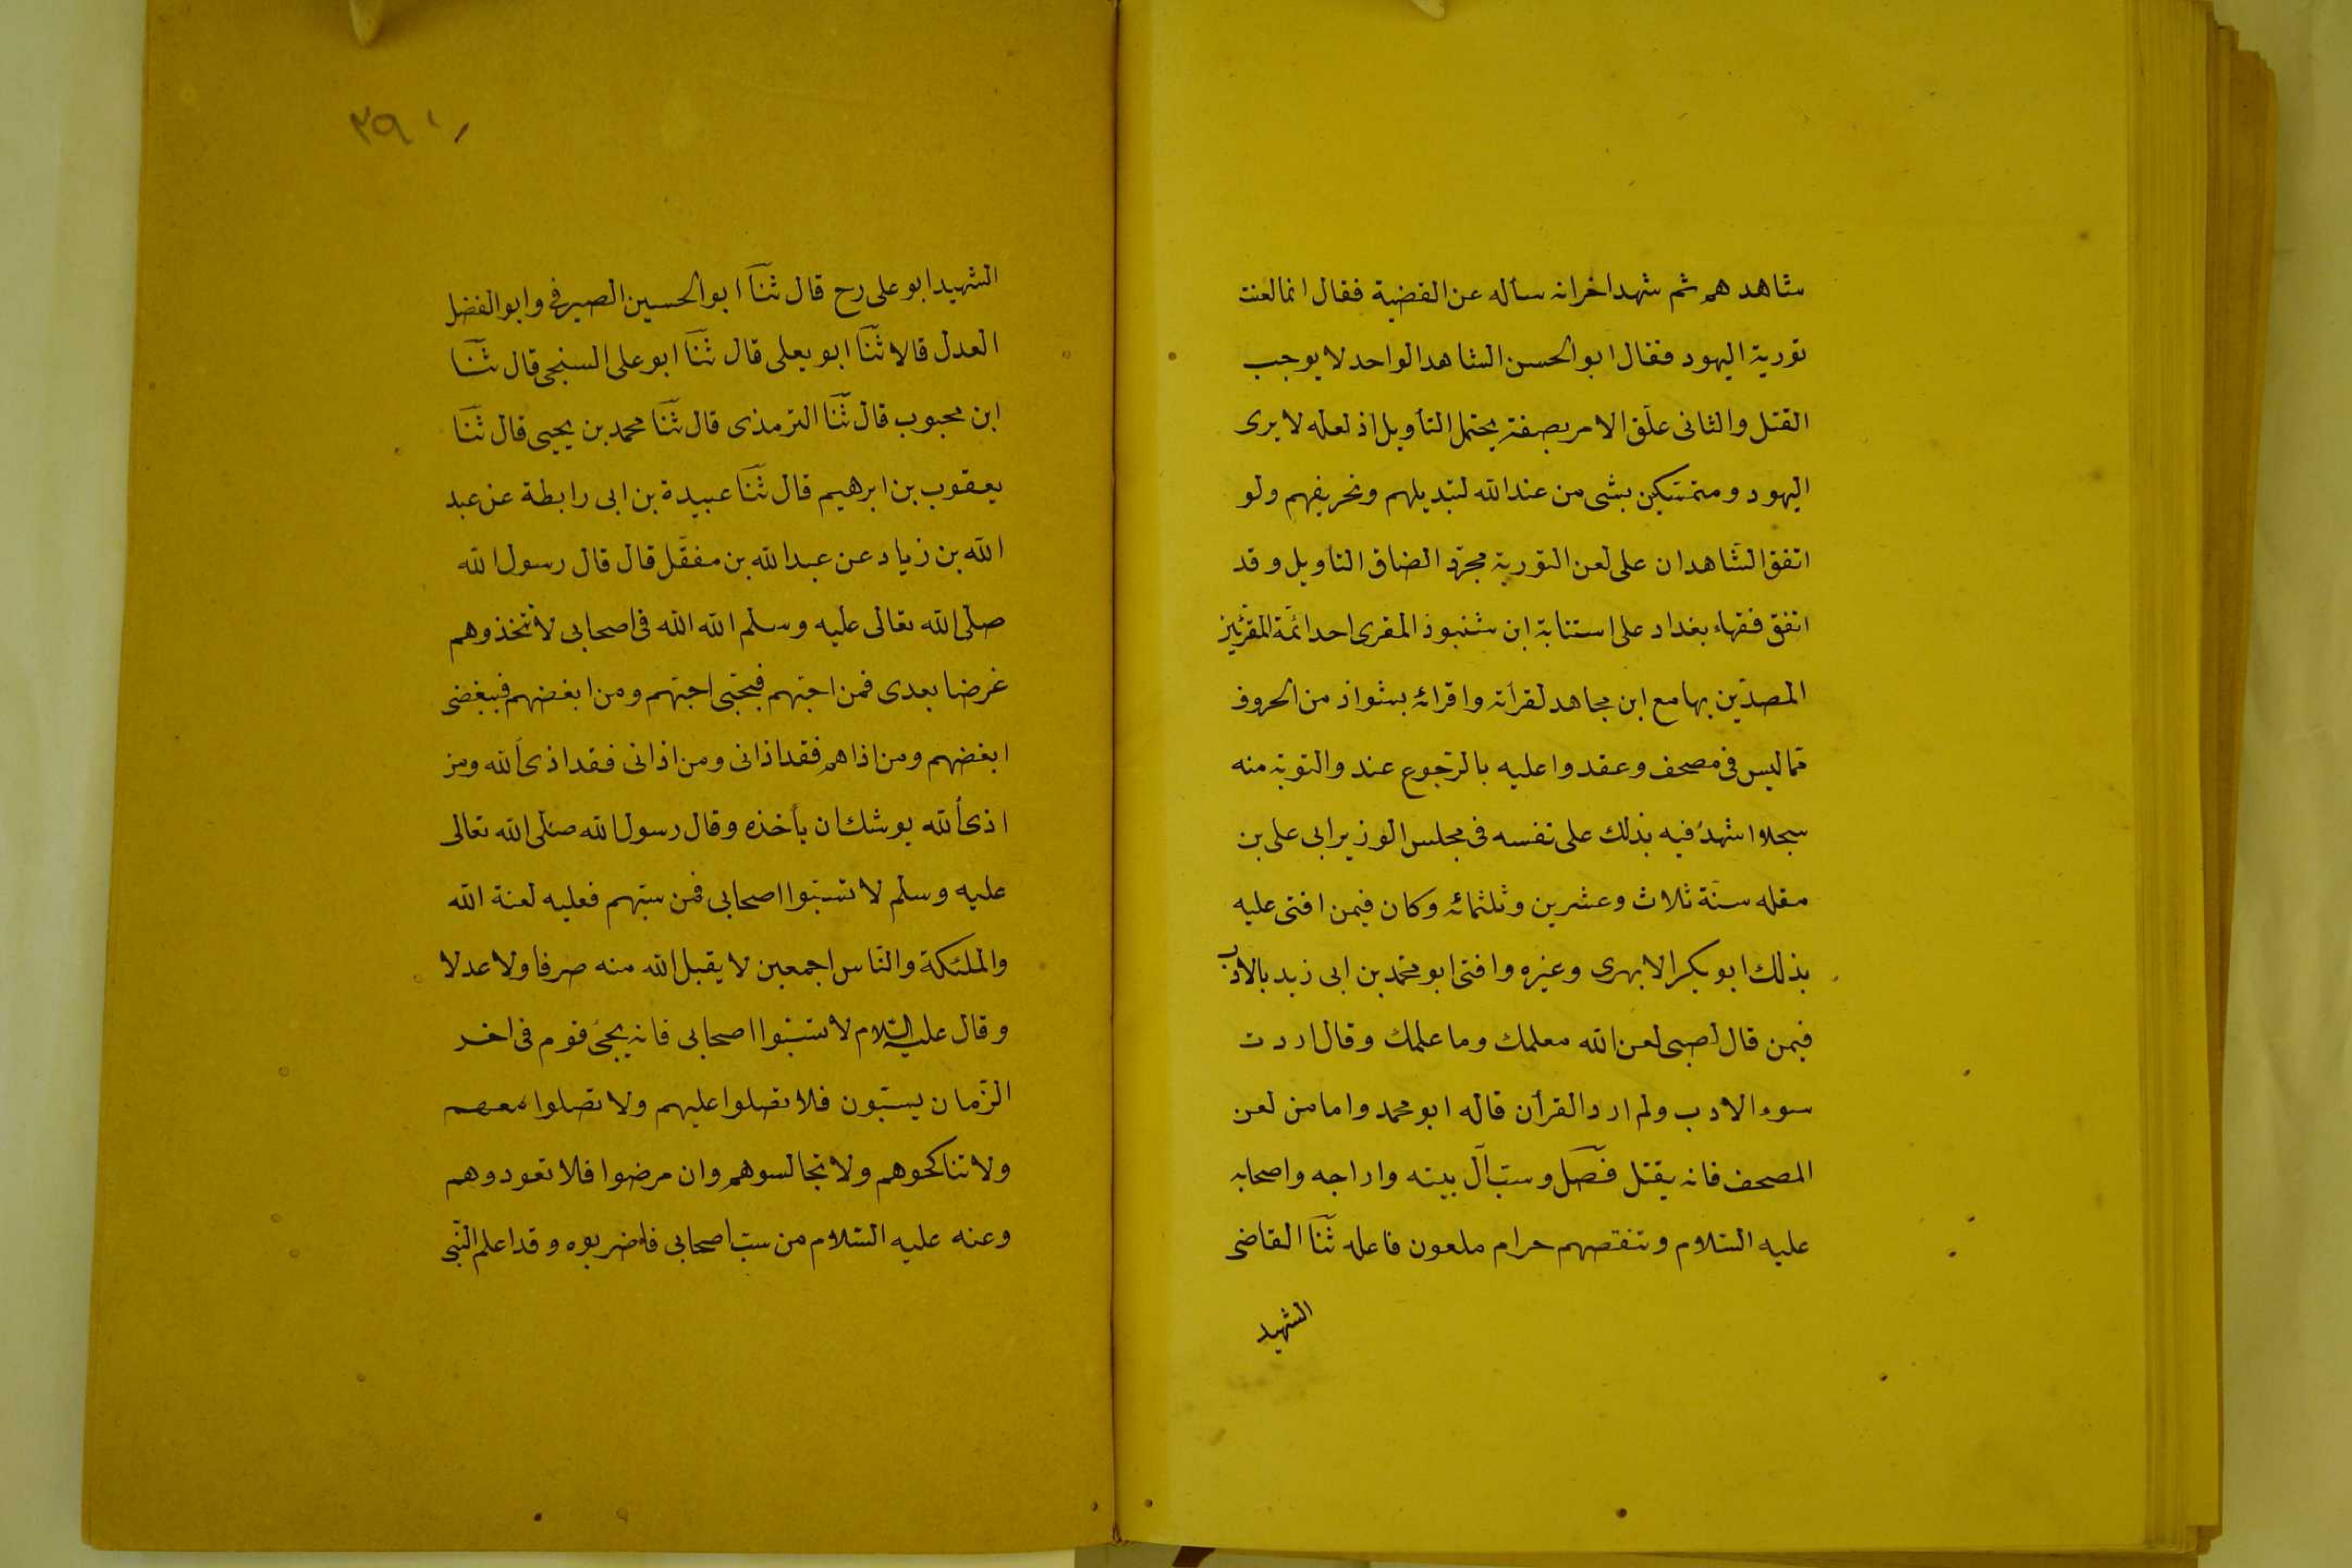 شاهد هم ثم شهد اخر انه سأله عن القضية فقال انما لعنت
تورية اليهود فقال ابو الحسن الشاهد الواحد لا يوجب
القتل والثانى علّق الامر بصفة يحتمل التأويل اذ لعله لا يرى
اليهود ومتمسّكين بشى من عند الله لتبديلهم وتحريفهم ولو
اتفق الشّاهدان على لعن التورية مجرّد الضاق التاويل وقد
اتفق فقهاء بغداد على استتابة ابن شنبوذ المقرى احد ائمّة المقرئين
المصدّين بها مع ابن مجاهد لقرأته واقرائه بشواذ من الحروف
ممّا ليس فى مصحف وعقدوا عليه بالرّجوع عند والتوبة منه
سجلا اشهد فيه بذلك على نفسه فى مجلس الوزير ابى على بن
مقله سنة ثلاث وعشرين وثلثمائه وكان فيمن افتى عليه
بذلك ابو بكر الابهرى وغيره وافتى ابو محمّد بن ابى زيد بالادب
فيمن قال لصبى لعن الله معلمك وما علمك وقال اردت
سوء الادب ولم ارد القرأن قاله ابو محمد واما من لعن
المصحف فانه يقتل فصّل وسبّ آل بيته وازاجه واصحابه
عليه السّلام وتنقصهم حرام ملعون فاعله ثنا القاضى
الشهيد
٢٩٠
الشهيد ابو على رح قال ثنا ابو الحسين الصيرفى وابو الفضل
العدل قالا ثنا ابو يعلى قال ثنا ابو على السنجى قال ثنا
ابن محبوب قال ثنا الترمذى قال ثنا محمد بن يحيى قال ثنا
يعقوب بن ابرهيم قال ثنا عبيدة بن ابى رابطة عن عبد
الله بن زياد عن عبد الله بن مغفّل قال قال رسول الله
صلى الله تعالى عليه وسلم الله الله فى اصحابى لا تتخذوهم
غرضا بعدى فمن احبّهم فبحبّى احبّهم ومن ابغضهم فببغضى
ابغضهم ومن اذاهم فقد اذانى ومن اذانى فقد اذى الله ومن
اذى الله يوشك ان يأخذه وقال رسول الله صلّى الله تعالى
عليه وسلم لا تسبّوا اصحابى فمن سبّهم فعليه لعنة الله
والملئكة والنّاس اجمعين لا يقبل الله منه صرفا ولا عدلا
وقال عليه السّلام لا تسبّوا اصحابى فانه يجئ قوم فى اخر
الزّمان يسبّون فلا تصلوا عليهم ولا تصلوا معهم
ولا تناكحوهم ولا تجالسوهم وان مرضوا فلا تعودوهم
وعنه عليه السّلام من سبّ اصحابى فاضربوه وقد اعلم النّبى